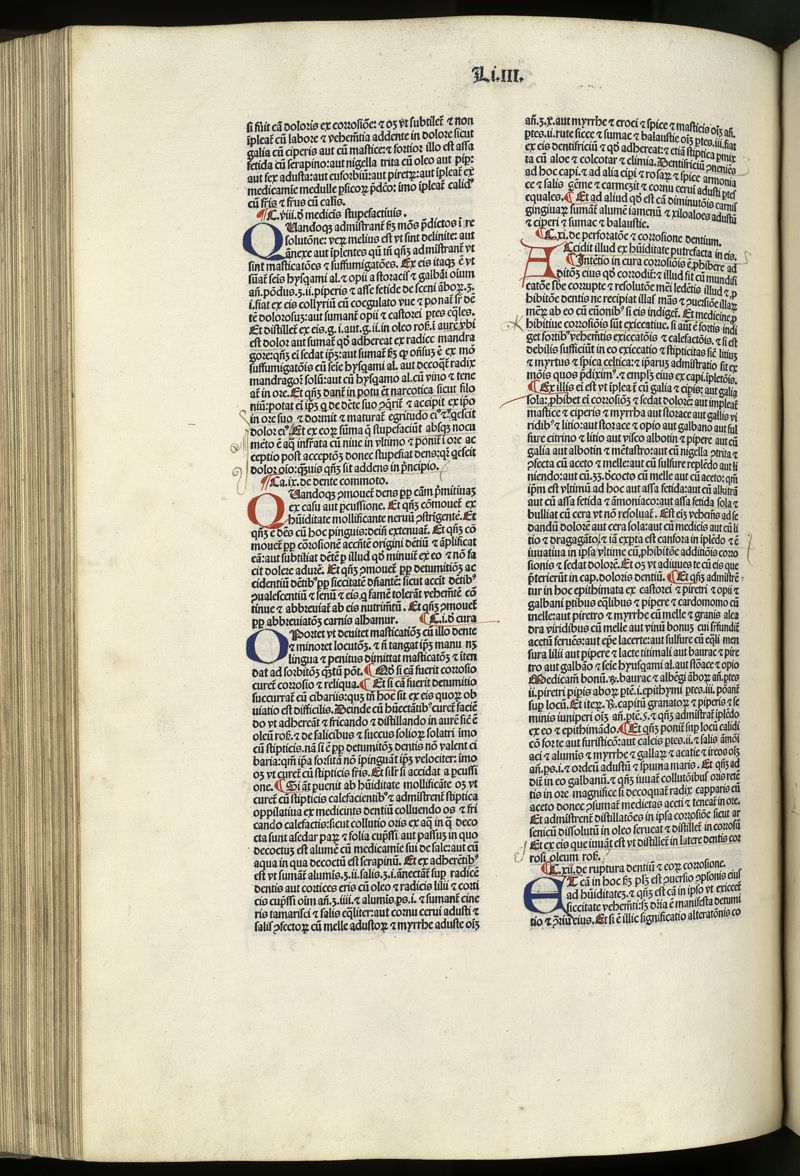 Li.III.
si fuit cā doloris ex corrosiōe: ⁊ oȝ vt subtilet̄ ⁊ non
īpleat̄ cū labore ⁊ vehemētia addente in dolore sicut
galia cū ciperis aut cū mastice: ⁊ fortior illo est assa
fetida cū serapino: aut nigella trita cū oleo aut pip̄:
aut fex adusta: aut euforbiū: aut piretȝ: aut īpleat̄ ex
medicamie medulle psicoꝝ p̄dc̄o: imo īpleat̄ calid᷒
cū fris ⁊ frus cū calis.
¶ C.viii. đ medicis stupefactiuis.
QVandoqȝ admistrant̄ sȝ mōs p̄dictos ī re
solutōne: veꝝ melius est vt sint delinite: aut
ānexe aut īplentes qū tn̄ qn̄ȝ admistrant̄ vt
sint masticatōes ⁊ suffumigatōes. Ex eis itaqȝ ē vt
sūat̄ seīs hysqami al. ⁊ opii ⁊ storacis ⁊ galbāi oium
añ. pōdus.ȝ.ii. piperis ⁊ asse fetide ⁊ sceni āboꝝ.ȝ.
i. fiat ex eis collyriū cū coagulato vue ⁊ ponat̄ sr̄ dē
tē dolorosuȝ: aut sumant̄ opii ⁊ castorei ptes eq̄les.
Et distillet̄ ex eis.g.i. aut.g.ii. in oleo ros̄.i aurē vbi
est dolor aut sumat̄ qđ adhereat ex radice mandra
gore: qn̄ȝ ei sedat ip̄ȝ: aut sumat̄ ex mō
suffumigatōis cū seīe hysqami al. aut decoqt̄ radix
mandragoȓ solū: aut cū hysqamo al. cū vino ⁊ tene
at̄ in ore. Et qn̄ȝ dant̄ in potu et̄ narcotica sicut filo
niū: potat ei ip̄ȝ q̄ de dēte suo ⁊ accipit ex ip̄o
in ore suo ⁊ dormit ⁊ maturat̄ egritudo ei᷒ ⁊ qescit
dolor ei᷒. Et ex eoꝝ sūma q̄ stupefaciūt absqȝ nocu
mēto ē aq̄ infrata cū niue in vltimo ⁊ ponit̄ ī ore ac
ceptio post acceptōȝ donec stupefiat dens: qȝ qescit
dolor oīo: q̄uis qn̄ȝ sit addens in p̄ncipio.
¶ Ca.ix. de dente commoto.
QVandoqȝ ɔmouet̄ dens pp̄ cām p̄mitiuaȝ
ex casu aut pcussione. Et qn̄ȝ cōmouet̄ ex
hūiditate mollificante neruū ɔstrigente. Et
qn̄ȝ ē dēs cū hoc pinguis: dein̄ extenuat̄. Et qn̄ȝ cō
mouet̄ pp̄ corosionē accn̄tē origini dētiū ⁊ āplificat
eā: aut subtiliat dētē p̄ illud qđ minuit̄ ex eo ⁊ nō fa
cit dolere adurē. Et qn̄ȝ ɔmouet̄ pp̄ detumitiōȝ ac
cidentiū dētib᷒ pp̄ siccitatē dn̄ante: sicut accit̄ dētib᷒
ɔualescentiū ⁊ senū ⁊ eis q̄ famē tolerāt vehemētē cō
tinue ⁊ abbreuiat̄ ab eis nutrim̄tū. Et qn̄ȝ ɔmouet̄
pp̄ abbreuiatōȝ carnis albamur. ¶ C.i.đ cura
OPortet vt deuitet masticatiōȝ cū illo dente
⁊ minoret locutōȝ. ⁊ ñ tangat ip̄ȝ manu nȝ
lingua ⁊ penitus dimittat masticatōȝ ⁊ itēn
dat ad sorbitōȝ q̄ȝtū pōt. ¶ Nō si cā fuerit corrosio
curet̄ corrosio ⁊ reliqua. ¶ Et si cā fuerit detumitio
succurrat̄ cū cibariis: quȝ tn̄ hoc sit ex eis quoꝝ ob
uiatio est difficilis. Deinde cū hūectātib᷒ curet̄ faciē
do vt adhereāt ⁊ fricando ⁊ distillando in aurē sic̄ ē
oleū ros̄.⁊ de salicibus ⁊ succus folioꝝ solatri imo
cū stipticis. nā si ē pp̄ detumitōȝ dentis nō valent ci
baria: qn̄ ipa forsitā nō īpinguāt ip̄ȝ velociter: imo
oȝ vt curet̄ cū stipticis fris. Et silr̄ si accidat a pcussi
one. ¶ Si āt puenit ab hūiditate mollificāte oȝ vt
curet̄ cū stipticis calefacientib᷒ ⁊ admistrent̄ stiptica
oppilatiua ex medicinis dentiū colluendo os ⁊ fri
cando calefactis: sicut collutio oris ex aq̄ in q̄ deco
cta sunt asedar paꝝ ⁊ folia cupssi aut passuȝ in quo
decoctuȝ est alumē cū medicamie sui de sale: aut cū
aqua in qua decoctū est serapinū. Et ex adherētib᷒
est vt sumāt̄ alumis.ȝ.ii. salis.ȝ.i. ānectant̄ sup̄ radicē
dentis aut cortices eris cū oleo ⁊ radicis lilii ⁊ corti
cis cupssi oīm añ.ȝ.iiii.⁊ alumis.pȝ.i.⁊ sumant̄ cine
ris tamarisci ⁊ salis eq̄liter: aut cornu cerui adusti ⁊
salis ɔfectoꝝ cū melle adustoꝝ ⁊ myrrhe aduste oīȝ
añ.ȝ.x. aut myrrhe ⁊ croci ⁊ spice ⁊ masticis oīȝ añ.
ptes.ii. rute sicce ⁊ sumac ⁊ balaustie oīȝ ptes.iii. fiat
ex eis dentifriciū ⁊ qđ adhereat: ⁊ etiā stiptica pmix
ta cū aloe ⁊ colcotar ⁊ climia. Dentifriciū ɔueniēs
ad hoc capi.⁊ ad alia cipi ⁊ rosaꝝ ⁊ spice armonia
ce ⁊ salis gēme ⁊ carmezit ⁊ cornu cerui adusti ptes
equales. ¶ Et ad aliud qđ est cā diminutōis carnis
gingiuaꝝ sumāt̄ alumē iamenū ⁊ xiloaloes adustū
⁊ ciperi ⁊ sumac ⁊ balaustie.
¶ C.xi. de perforatōe ⁊ corrosione dentium.
ACcidit illud ex hūiditate putrefacta in eis.
¶ Intētio in cura corrosiōis ē phibere ad
ditōȝ eius qđ corrodit̄: ⁊ illud fit cū mundifi
catōe sbe corrupte ⁊ resolutōe mēi ledētis illud ⁊ ꝓ
hibitōe dentis ne recipiat illas mās ⁊ ɔuersiōe illaꝝ
mēꝝ ab eo cū euōnib᷒ si eis indiget̄. Et medicine ꝓ
hibitiue corrosiōis sūt exiccatiue. si aūt ē fortis indi
get fortib᷒ vehemētis exiccatōis ⁊ calefactōis. ⁊ si est
debilis sufficiūt in eo exiccatio ⁊ stipticitas sic̄ litius
⁊ myrtus ⁊ spica celtica: ⁊ ip̄arus admistratio fit ex
mōis quos p̄dixim᷒. ⁊ emplȝ eius ex capi. īpletōis.
¶ Ex illis ei est vt īpleat̄ cū galia ⁊ cipis: aut galia
sola: phibet ei corrosiōȝ ⁊ sedat dolorē: aut impleat̄
mastice ⁊ ciperis ⁊ myrrha aut storace aut gallis vi
ridib᷒ ⁊ litio: aut storace ⁊ opio aut galbano aut sul
fure citrino ⁊ litio aut visco albotin ⁊ pipere aut cū
galia aut albotin ⁊ mētastro: aut cū nigella ɔtrita ⁊
ɔfecta cū aceto ⁊ melle: aut cū sulfure replēdo aut li
niendo: aut cū.ȝȝ. đcocto cū melle aut cū aceto: qn̄
ip̄m est vltimū ad hoc aut assa fetida: aut cū alkitrā
aut cū assa fetida ⁊ āmoniaco: aut assa fetida sola ⁊
bulliat cū cera vt nō resoluat̄. Est eiȝ vehemēs ad se
dandū dolorē aut cera sola: aut cū medicis aut cū li
tio ⁊ dragagāto: ⁊ iā expta est canfora in īplēdo ⁊ ē
iuuatiua in ip̄sa vltime cū ꝓhibitōe additiōis corro
sionis ⁊ sedat dolorē. Et oȝ vt adiuues te cū eis que
p̄terierūt in cap. doloris dentiū. ¶ Et qn̄ȝ admistrē
tur in hoc epithimata ex castorei ⁊ piretri ⁊ opii ⁊
galbani ptibus eq̄libus ⁊ pipere ⁊ cardomomo cū
melle: aut piretro ⁊ myrrhe cū melle ⁊ granis alca
dra viridibus cū melle aut vinū bonuȝ cui īfundit̄
acetū feruēs: aut epe lacerte: aut sulfure cū eq̄li men
sura lilii aut pipere ⁊ lacte titimali aut baurac ⁊ pire
tro aut galbāo ⁊ seīe hyusqami al. aut stōace ⁊ opio
Medicam̄ bonū.℞. baurac ⁊ albēgi āboꝝ añ. ptes
ii. piretri pipis aboꝝ ptē.i. epithymi ptes.iii. pōant̄
sup̄ locū. Et iteꝝ.℞. capitū granatoꝝ ⁊ piperis ⁊ se
minis iuniperi oīȝ añ. ptē.s.⁊ qn̄ȝ admistrat̄ īplēdo
ex eo ⁊ epithimādo. ¶ Et qn̄ȝ ponit̄ sup̄ locū calidi
cō forte aut furisticō: aut calcis ptes.ii.⁊ salis āmoī
aci ⁊ alumis ⁊ myrrhe ⁊ gallaꝝ ⁊ acatie ⁊ ireos oīȝ
añ. pȝ.i.⁊ ordeū adustū ⁊ spuma maris. Et qn̄ȝ ad
dit̄ in eo galbanū.⁊ qn̄ȝ iuuat̄ collutōibus oris retē
tis in ore magnifice si decoquat̄ radix capparis cū
aceto donec ɔsumat̄ medietas aceti ⁊ teneat̄ in ore.
Et admistrent̄ distillatōes in ip̄sa corrosiōe sicut ar
senicū dissolutū in oleo ferueat ⁊ distillet̄ in corosū
Et ex eis que iuuāt est vt distillet̄ in latere dentis cor
rosi oleum ros̄.
¶ C.xii. de ruptura dentiū ⁊ eoꝝ corrosione.
ET cā in hoc sȝ plȝ est ɔuersio ɔplonis eius
ad hūiditatez.⁊ qn̄ȝ est cā in ip̄o vt exiccet̄
siccitate vehemēti: sȝ dr̄ia ē manifesta detumi
tio ⁊ ɔtriu eius. Et si ē illic significatio alteratōnis co